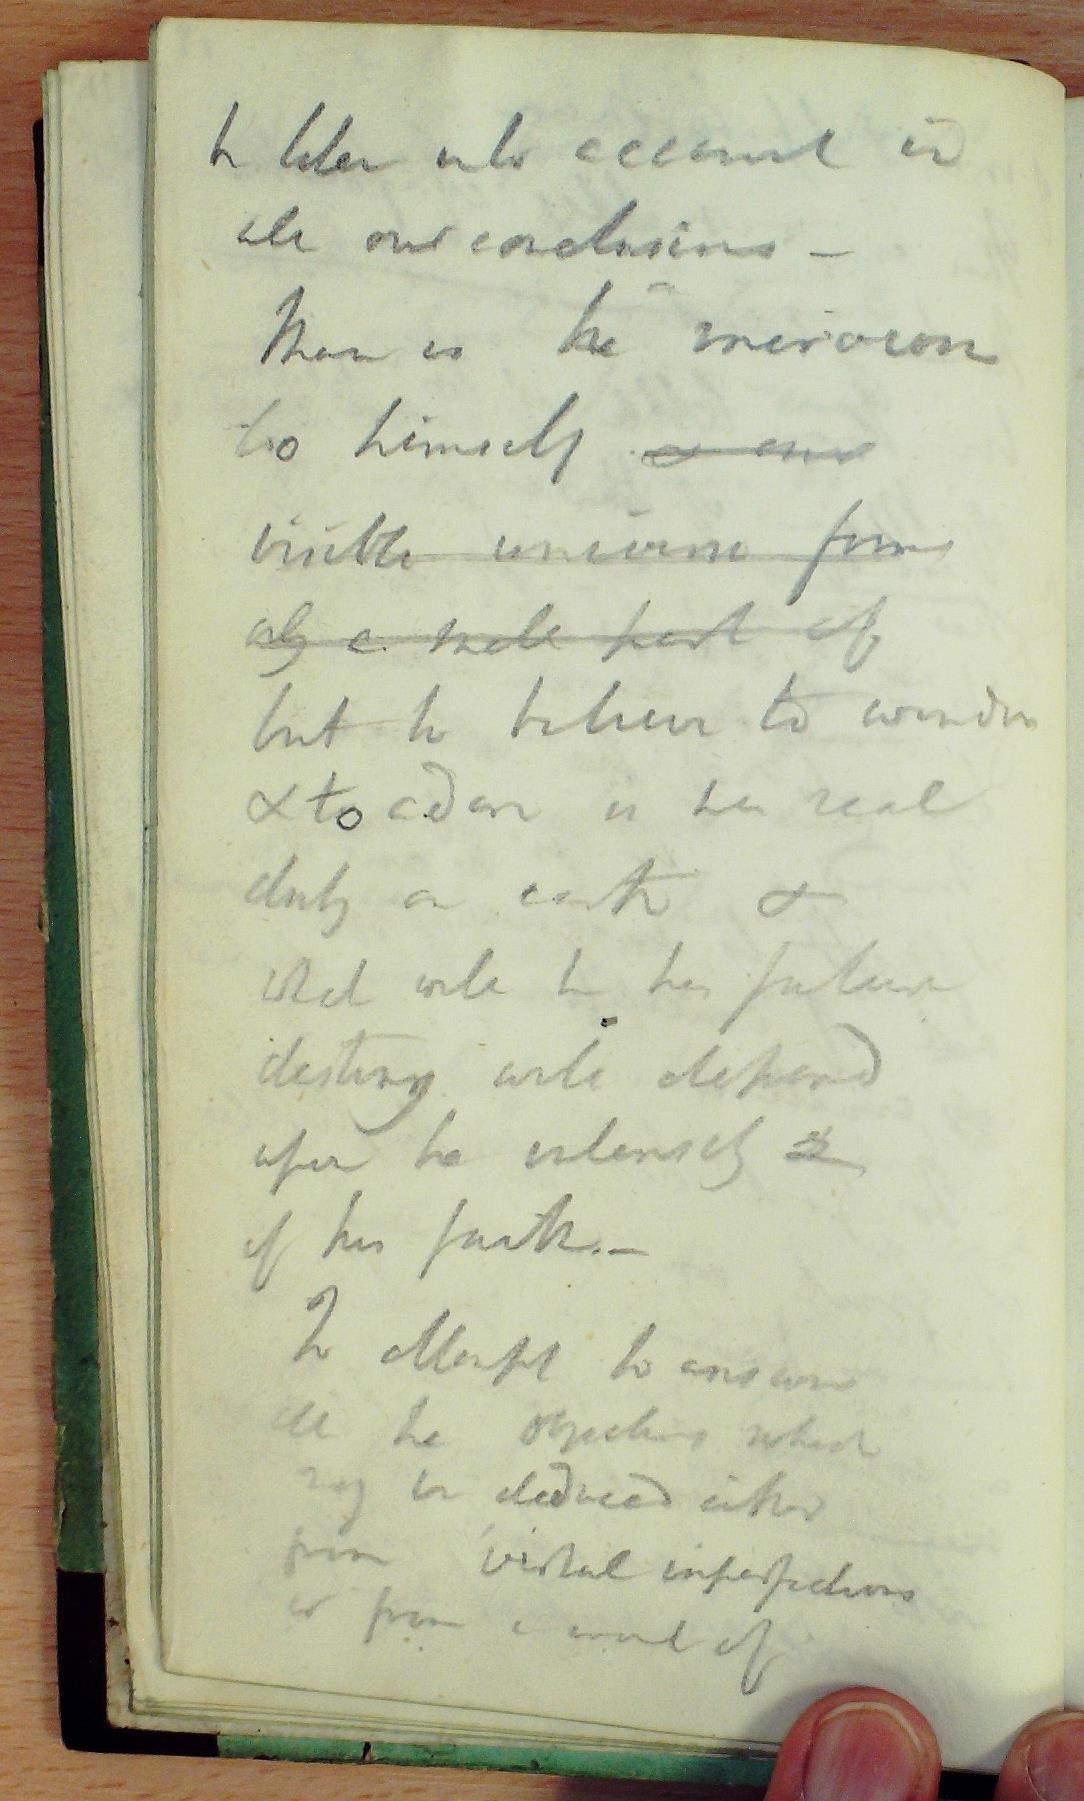 be taken into account in
all our conclusions –
Man is the microcosm
to himself <s>& our</s>
<s>visible universe forms</s>
<s>only a small part of</s>
but to believe to wonder
& to adore is his real
duty on earth &
what will be his future
destiny will depend
upon the intensity
of his faith. –
To attempt to answer
all the objections which
may be deduced either
from virtual imperfections
or from a want of